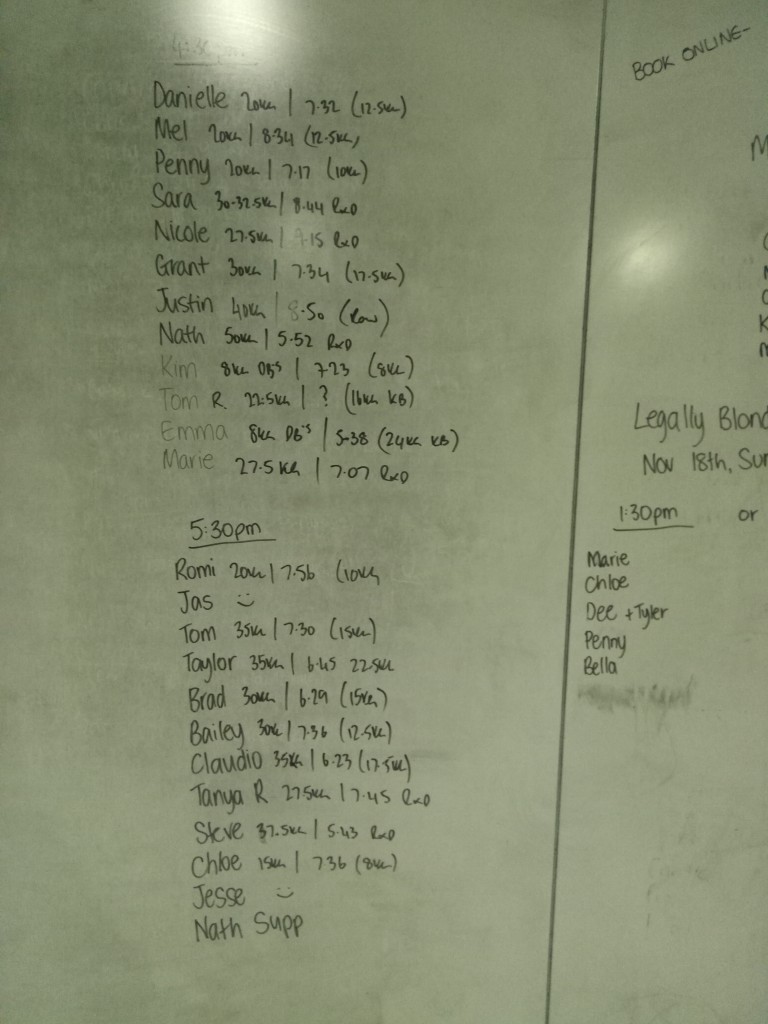 Danielle 20KG | 7.32 (12.5KG)
Mel 20KG | 8.34 (12.5KG)
Penny 20KG | 7.17 (10KG)
Sara 30-32.5KG | 8.44 RxD
Nicole 27.5KG | 7.15 RxD
Grant 30KG | 7.34 (17.5KG)
Justin 40KG | 8.50 (Row)
Nath 50KG | 5.52 RxD
Kim 8KG DB's | 7.23 (8KG)
Tom R. 22.5KG | ? (16KG KB)
Emma 8KG DB's | 5.38 (24KG KB)
Marie 27.5KG | 7.07 RxD
5:30pm
Romi 20KG | 7.56 (10KG)
Jas
Tom 35KG | 7.30 (15KG)
Taylor 35KG | 6.45 22.5KG
Brad 30KG | 6.29 (15KG)
Bailey 30KG | 7.36 (12.5KG)
Claudio 35KG | 6.23 (17.5KG)
Tanya R 27.5KG | 7.45 RxD
Steve 37.5KG | 5.43 RxD
Chloe 15KG | 7.36 (8KG)
Jesse
Nath Supp
BOOK ONLINE-
Legally Blond
Nov 18th, Sun
1:30pm or
Marie
Chloe
Dee + Tyler
Penny
Bella